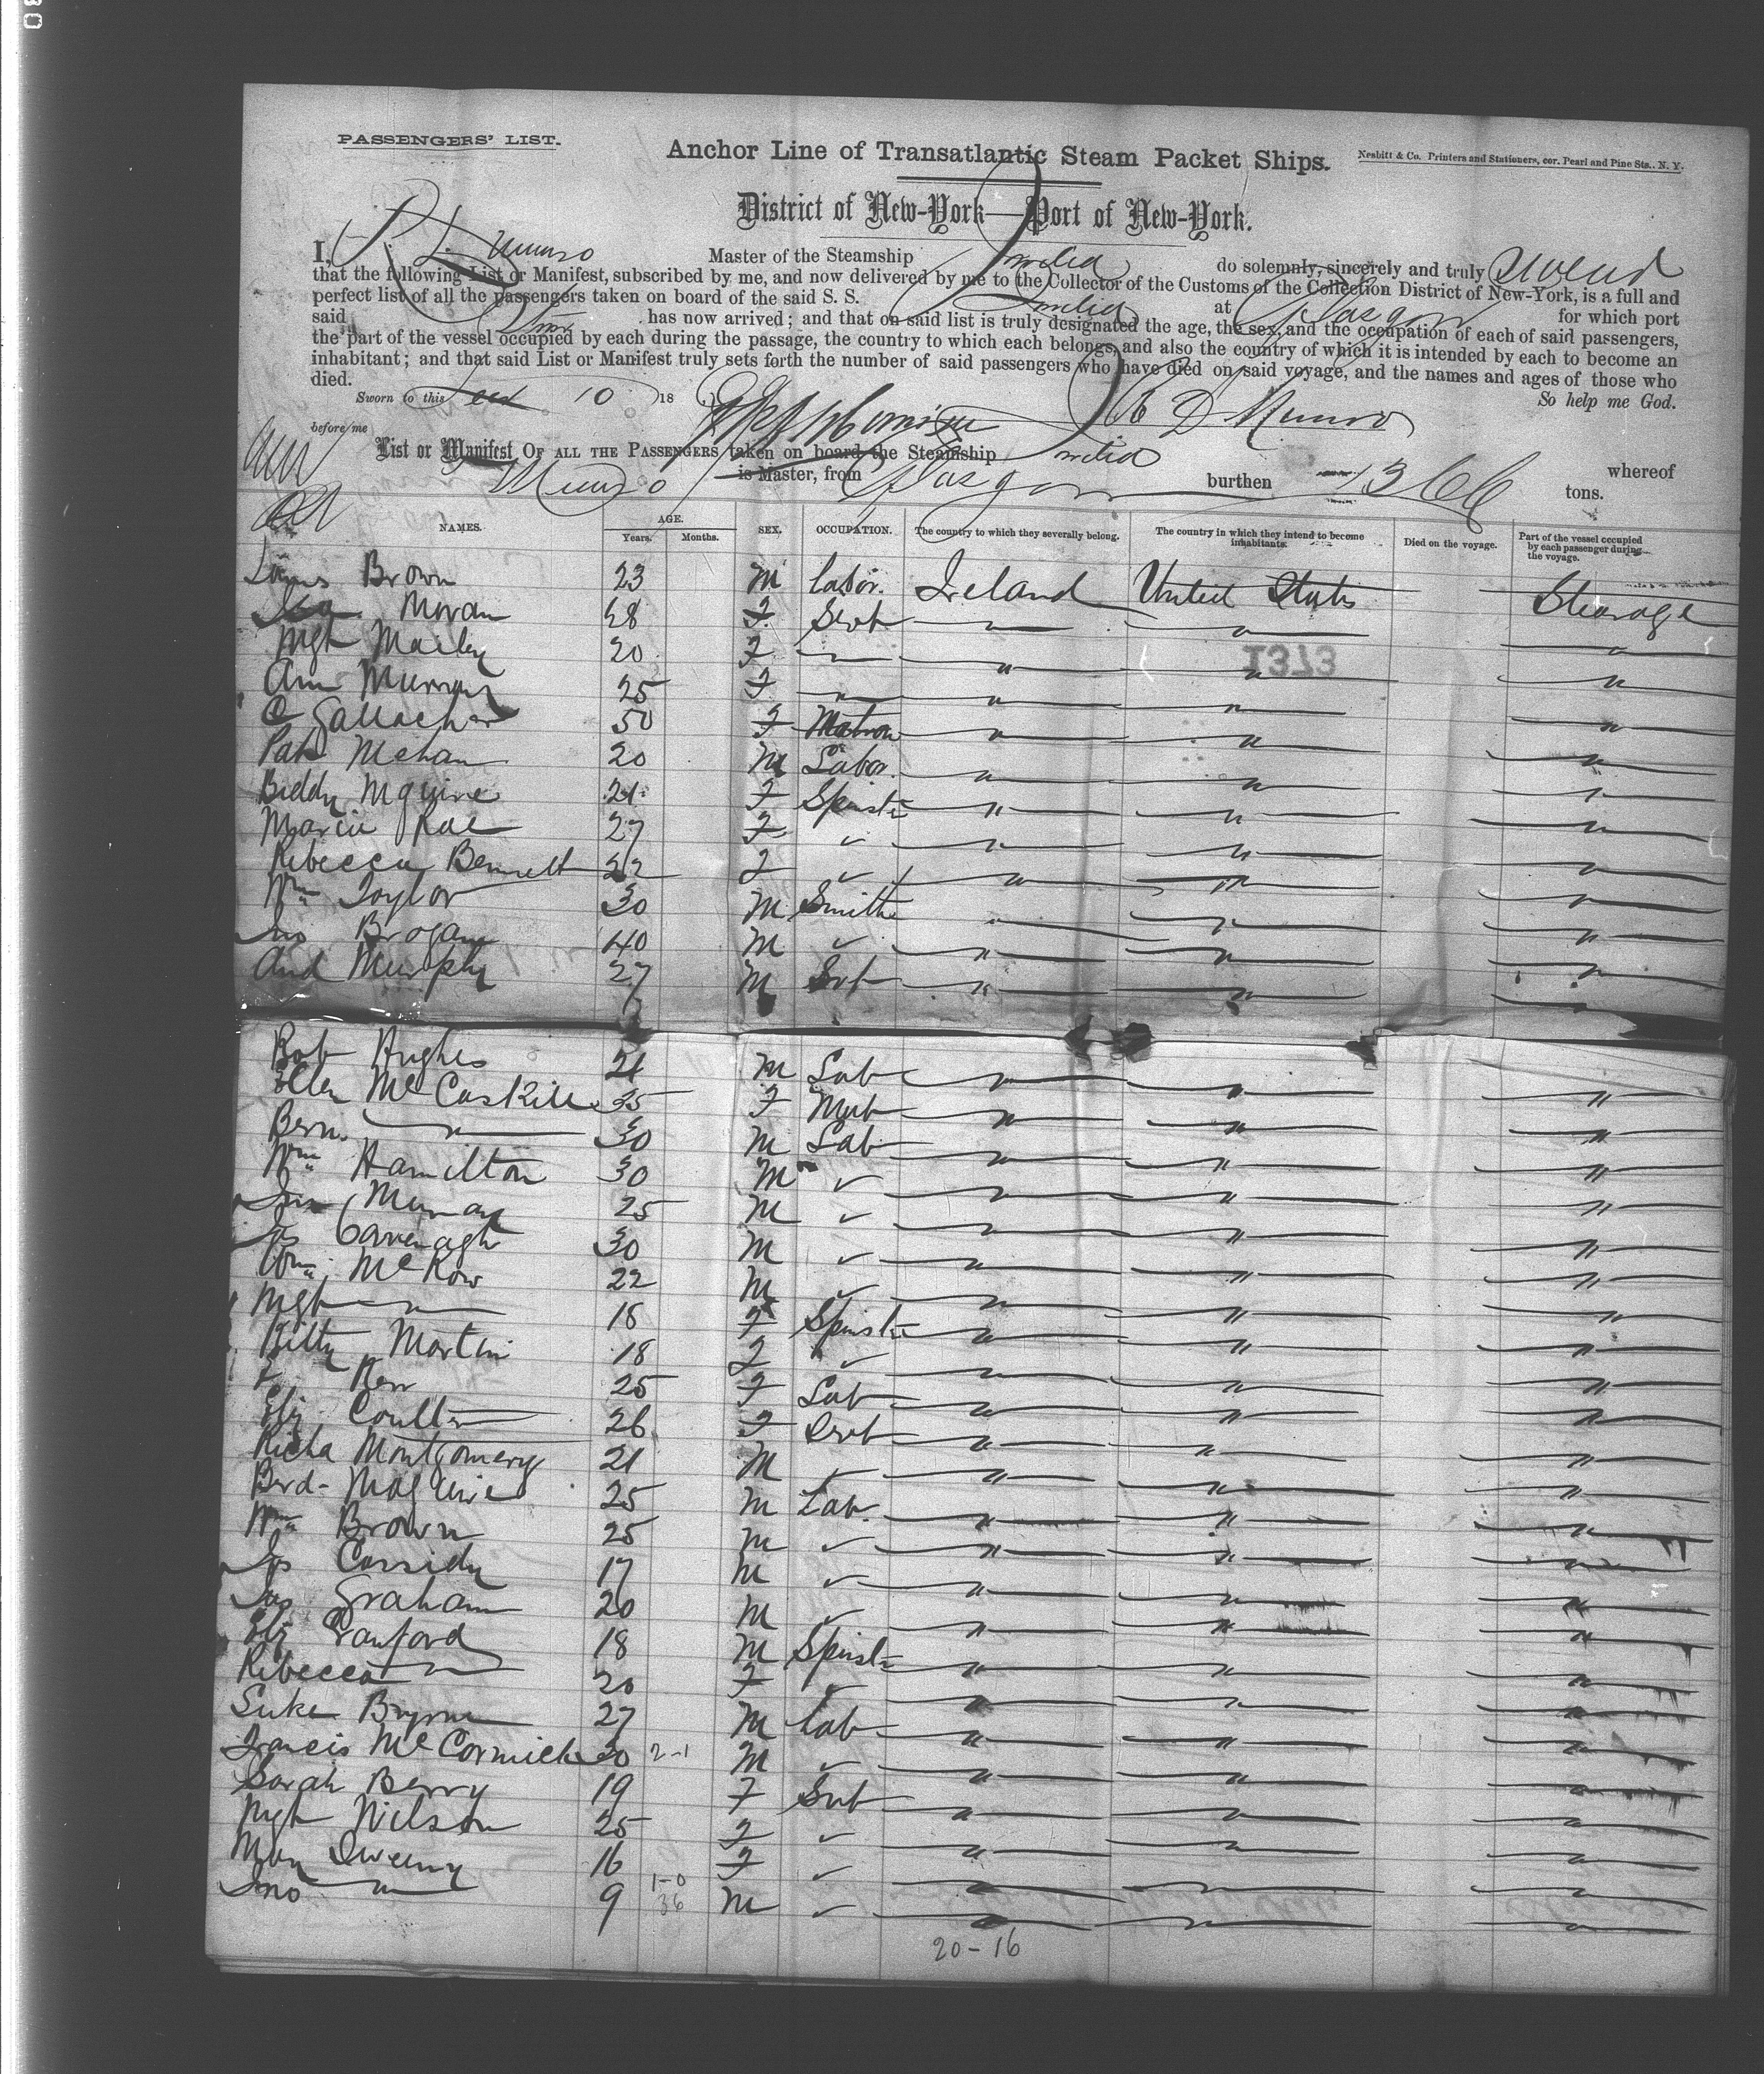 PASSENGERS' LIST.
Anchor Line of Transatlantic Steam Packet Ships.
Nesbitt & Co. Printers and Stationers, cor. Pearl and Pine Sts., N. Y.
District of New-York—Port of New-York.
I, Munro Master of the Steamship India do solemnly, sincerely and truly Swear
that the following List or Manifest, subscribed by me, and now delivered by me to the Collector of the Customs of the Collection District of New-York, is a full and
perfect list of all the passengers taken on board of the said S. S. India at Glasgow for which port
said Stmr has now arrived; and that on said list is truly designated the age, the sex, and the occupation of each of said passengers,
the part of the vessel occupied by each during the passage, the country to which each belongs, and also the country of which it is intended by each to become an
inhabitant; and that said List or Manifest truly sets forth the number of said passengers who have died on said voyage, and the names and ages of those who
died. So help me God.
Sworn to this 10 18
before me D Munro
List or Manifest OF ALL THE PASSENGERS taken on board the Steamship India whereof
Munro is Master, from Glasgow burthen 1366 tons.
NAMES. AGE. Years. Months. SEX. OCCUPATION. The country to which they severally belong. The country in which they intend to become inhabitants. Died on the voyage. Part of the vessel occupied by each passenger during the voyage.
Brown 23 M Labor. Ireland United States Steerage
Moran 28 F. Servt " " "
Mgt Mailey 20 F " " " "
Ann Murray 25 F " " " "
C Gallacher 50 F Matron " " "
Pat Mehan 20 M Labor. " " "
Biddy Mguire 21 F Spinstr " " "
Maria Rae 27 F " " " "
Rebecca Bennett 22 F " " " "
Wm Taylor 30 M Smith " " "
Jno Brogan 40 M " " " "
And Murphy 27 M Svt " " "
Rob Hughes 21 M Lab " " "
Ellen McCaskill 35 F Mat " " "
Bern. " 30 M Lab " " "
Wm Hamilton 30 M " " " "
Murray 25 M " " " "
Js Cavenagh 30 M " " " "
Wm McKow 22 M " " " "
Mgt " 18 F Spinstr " " "
Kitty Martin 18 F " " " "
Kerr 25 F Lab " " "
Elz Coulter 26 F Servt " " "
Richd Montgomery 21 M " " " "
Brd- Maguire 25 M Lab. " " "
Wm Brown 25 M " " " "
Js Cassidy 17 M " " " "
Jas Graham 20 M " " " "
Elz Cranford 18 M Spinstr " " "
Rebecca " 20 F " " " "
Luke Byrne 27 M Lab " " "
Francis McCormick 20 2-1 M " " " "
Sarah Berry 19 F Svt " " "
Mgt Nilson 25 F " " " "
Mary Sweeny 16 F " " " "
Jno " 9 1-0 36 M " " " "
20-16
1373